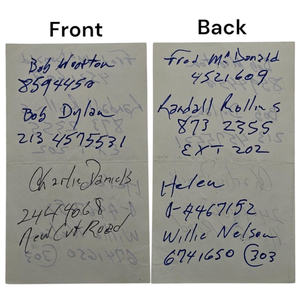 Front
Bob Wootton
8594450
Bob Dylan
213 4575531
Charlie Daniels
2444068
New Cut Road
Back
Fred McDonald
4521609
Randall Rollins
873 2355
EXT 202
Helen
467152
Willie Nelson
6741650 (303